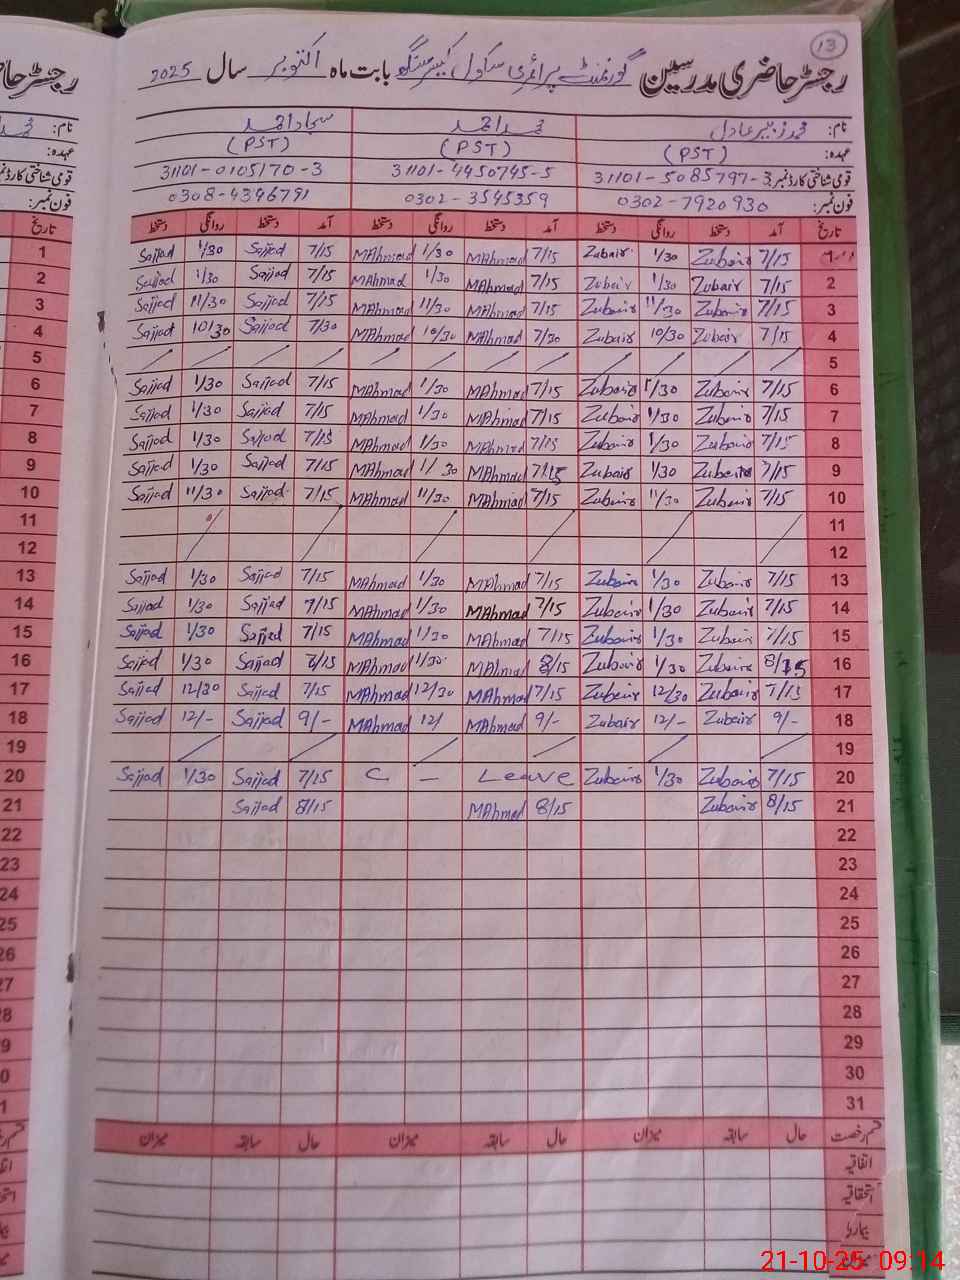 13
رجسٹر حاضری مدرسین گورنمنٹ پرائمری سکول بابت ماہ اکتوبر سال 2025
نام: محمد زبیر عادل محمد احمد سجاد احمد
عہدہ: (PST) (PST) (PST)
قومی شناختی کارڈ نمبر: 31101-5085797-3 31101-4450745-5 31101-0105170-3
فون نمبر: 0302-7920930 0302-3545359 0308-4346791
تاریخ آمد دستخط روانگی دستخط آمد دستخط روانگی دستخط آمد دستخط روانگی دستخط تاریخ
1 7/15 Zubair 1/30 Zubair 7/15 MAhmad 1/30 MAhmad 7/15 Sajjad 1/30 Sajjad 1
2 7/15 Zubair 1/30 Zubair 7/15 MAhmad 1/30 MAhmad 7/15 Sajjad 1/30 Sajjad 2
3 7/15 Zubair 11/30 Zubair 7/15 MAhmad 11/30 MAhmad 7/15 Sajjad 11/30 Sajjad 3
4 7/15 Zubair 10/30 Zubair 7/30 MAhmad 10/30 MAhmad 7/30 Sajjad 10/30 Sajjad 4
5 5
6 7/15 Zubair 1/30 Zubair 7/15 MAhmad 1/30 MAhmad 7/15 Sajjad 1/30 Sajjad 6
7 7/15 Zubair 1/30 Zubair 7/15 MAhmad 1/30 MAhmad 7/15 Sajjad 1/30 Sajjad 7
8 7/15 Zubair 1/30 Zubair 7/15 MAhmad 1/30 MAhmad 7/15 Sajjad 1/30 Sajjad 8
9 7/15 Zubair 1/30 Zubair 7/15 MAhmad 1/30 MAhmad 7/15 Sajjad 1/30 Sajjad 9
10 7/15 Zubair 11/30 Zubair 7/15 MAhmad 11/30 MAhmad 7/15 Sajjad 11/30 Sajjad 10
11 11
12 12
13 7/15 Zubair 1/30 Zubair 7/15 MAhmad 1/30 MAhmad 7/15 Sajjad 1/30 Sajjad 13
14 7/15 Zubair 1/30 Zubair 7/15 MAhmad 1/30 MAhmad 7/15 Sajjad 1/30 Sajjad 14
15 7/15 Zubair 1/30 Zubair 7/15 MAhmad 1/30 MAhmad 7/15 Sajjad 1/30 Sajjad 15
16 8/15 Zubair 1/30 Zubair 8/15 MAhmad 1/30 MAhmad Sajjad 1/30 Sajjad 16
17 7/15 Zubair 12/30 Zubair 7/15 MAhmad 12/30 MAhmad 7/15 Sajjad 12/30 Sajjad 17
18 9/- Zubair 12/- Zubair 9/- MAhmad 12/ MAhmad 9/- Sajjad 12/- Sajjad 18
19 19
20 7/15 Zubair 1/30 Zubair C - Leave 7/15 Sajjad 1/30 Sajjad 20
21 8/15 Zubair 8/15 MAhmad 8/15 Sajjad 21
22 22
23 23
24 24
25 25
26 26
27 27
28 28
29 29
30 30
31 31
قسم رخصت حال سابقہ میزان حال سابقہ میزان حال سابقہ میزان
اتفاقیہ
استحقاقیہ
بیماری
میزان
21-10-25 09:14